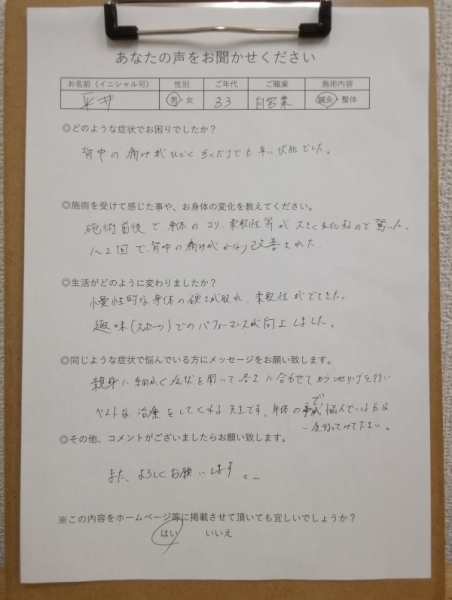 あなたの声をお聞かせください
お名前（イニシャル可） 性別 ご年代 ご職業 施術内容
平井 男・女 33 自営業 鍼灸・整体
◎どのような症状でお困りでしたか？
背中の痛みがひどく歩くだけでも辛い状態でした。
◎施術を受けて感じた事や、お身体の変化を教えてください。
施術前後で、身体のコリ、柔軟性等が大きく変化するので驚いた。
1〜2回で、背中の痛みがかなり改善された。
◎生活がどのように変わりましたか？
慢性的な身体の硬さが取れ、柔軟性がでてきた。
趣味（スポーツ）でのパフォーマンスが向上しました。
◎同じような症状で悩んでいる方にメッセージをお願い致します。
親身に細かく症状を聞いて に合わせてカウンセリングを行い
ベストな治療をしてくれる先生です。身体の事で悩んでいる方は
一度行ってみて下さい。
◎その他、コメントがございましたらお願い致します。
また、よろしくお願いします。
※この内容をホームページ等に掲載させて頂いても宜しいでしょうか？
はい いいえ